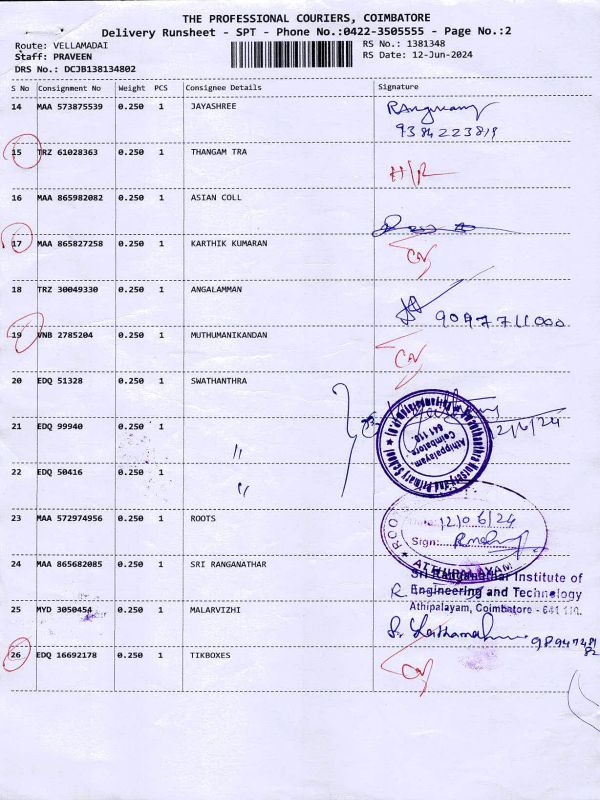 THE PROFESSIONAL COURIERS, COIMBATORE
Delivery Runsheet - SPT - Phone No.:0422-3505555 - Page No.:2
Route: VELLAMADAI RS No.: 1381348
Staff: PRAVEEN RS Date: 12-Jun-2024
DRS No.: DCJB138134802
S No Consignment No Weight PCS Consignee Details Signature
14 MAA 573875539 0.250 1 JAYASHREE
9384223819
15 TRZ 61028363 0.250 1 THANGAM TRA H/R
16 MAA 865982082 0.250 1 ASIAN COLL
17 MAA 865827258 0.250 1 KARTHIK KUMARAN
18 TRZ 30049330 0.250 1 ANGALAMMAN
9097711000
19 VNB 2785204 0.250 1 MUTHUMANIKANDAN
20 EDQ 51328 0.250 1 SWATHANTHRA
12/6/24
21 EDQ 99940 0.250 1 "
Swathanthra Nursery and Primary School
Athippalayam
Coimbatore
641 110.
22 EDQ 50416 0.250 1 "
23 MAA 572974956 0.250 1 ROOTS
12/06/24
Sign:
ATHIPALAYAM
24 MAA 865682085 0.250 1 SRI RANGANATHAR
Sri Ranganathar Institute of
Engineering and Technology
Athipalayam, Coimbatore - 641 110.
25 MYD 3050454 0.250 1 MALARVIZHI
26 EDQ 16692178 0.250 1 TIKBOXES